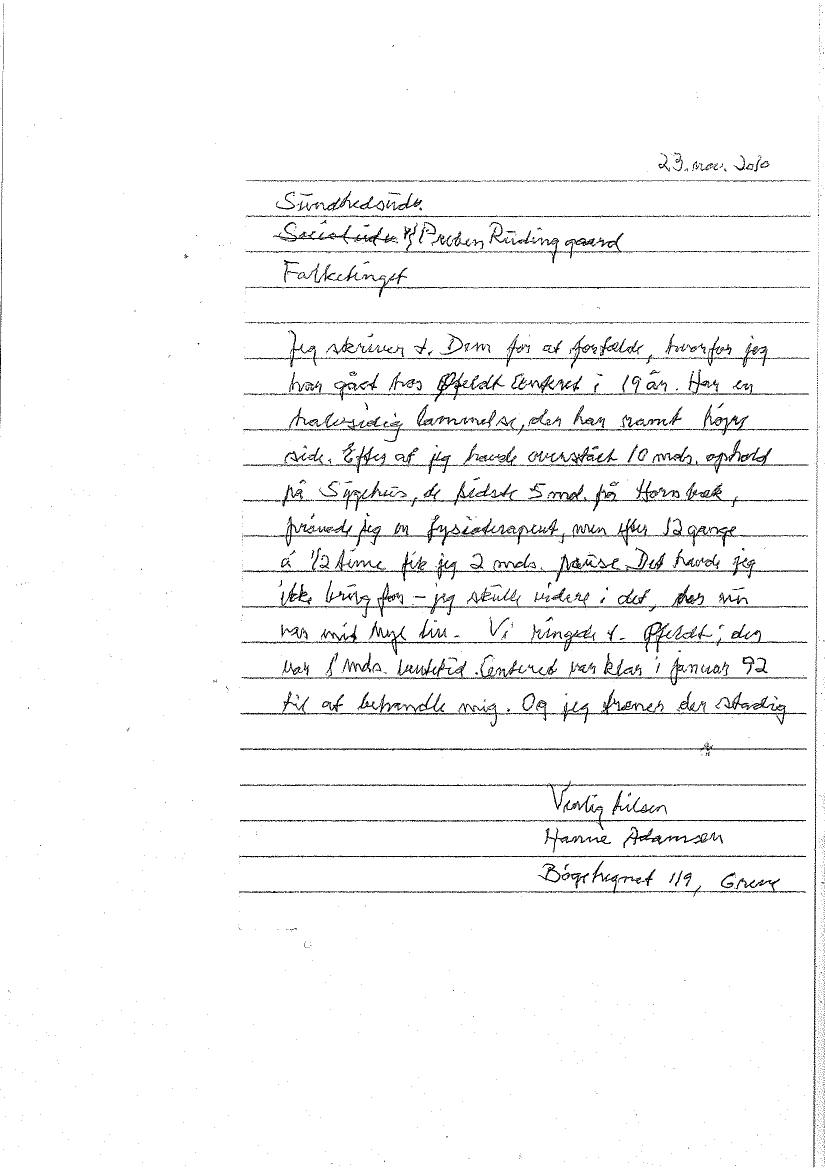 23. nov. 2010
Sundhedsudv.
Socialudv. v/ Preben Rudingaard
Folketinget
Jeg skriver t. Dem for at fortælde, hvorfor jeg
har gået hos Øfeldt Centeret i 19 år. Har en
halvsidig lammelse, der har ramt højre
side. Efter at jeg havde overstået 10 mds. ophold
på Sygehus, de sidste 5 md. på Hornbæk,
prøvede jeg en fysioterapeut, men efter 12 gange
á 1/2 time fik jeg 2 mds. pause. Det havde jeg
ikke brug for – jeg skulle videre i det, der nu
var mit nye liv. Vi ringede t. Øfeldt; der
var mds. ventetid. Centeret var klar i januar 92
til at behandle mig. Og jeg træner der stadig
Venlig hilsen
Hanne Adamsen
Bøgehegnet 119, Greve